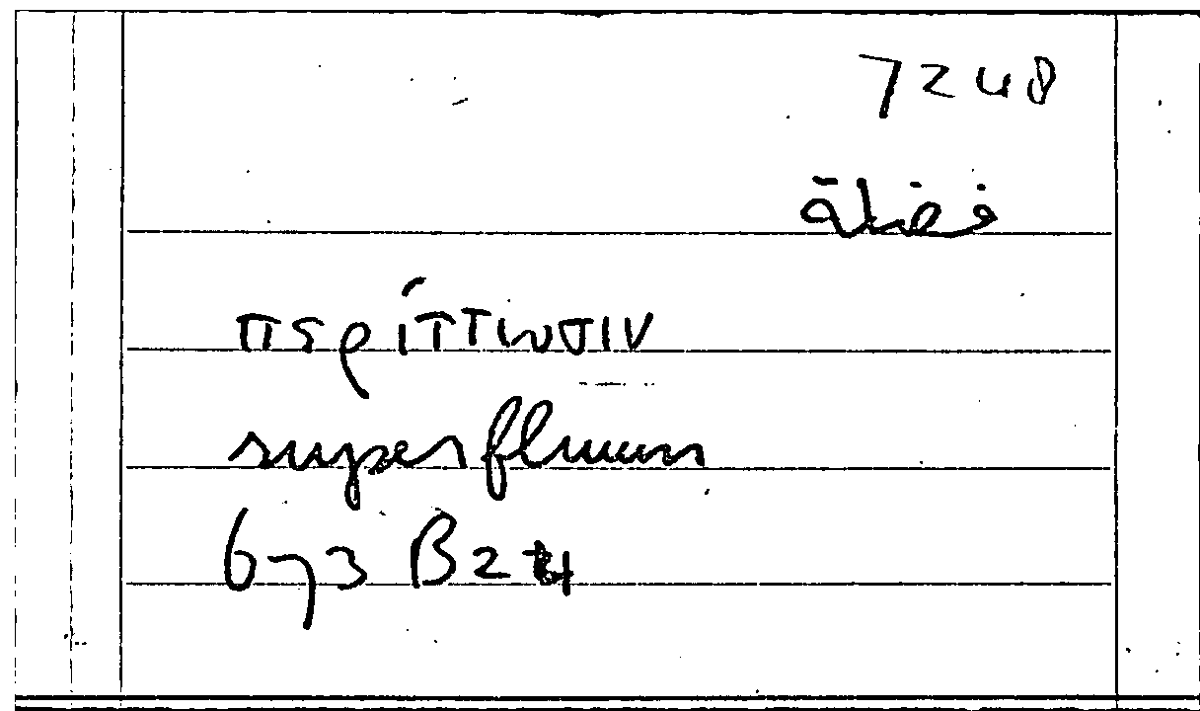 7248
فضلة
περίττωσιν
superfluum
673 B 24